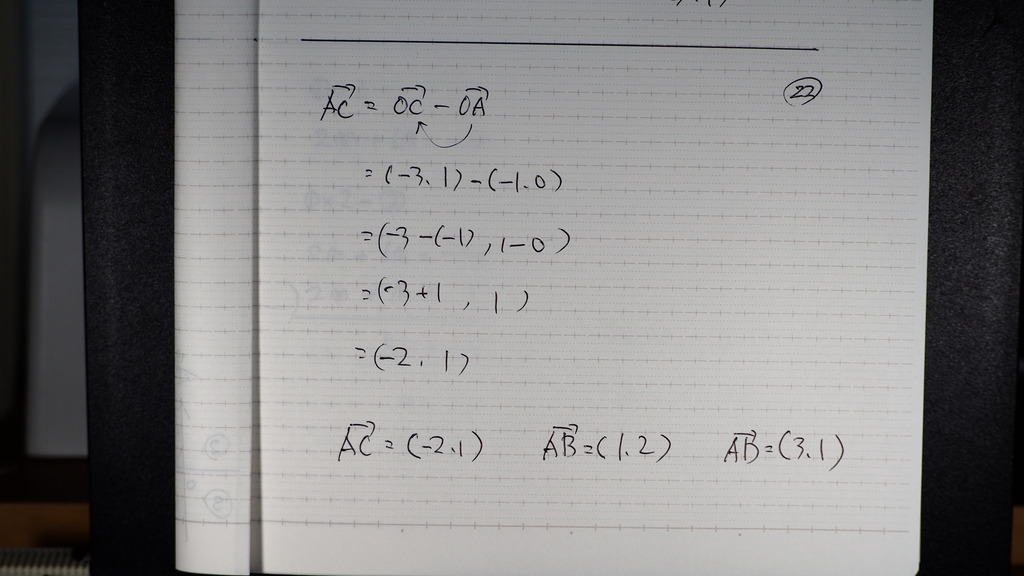 ㉒
AC→ = OC→ - OA→
= (-3. 1) - (-1. 0)
= (-3 - (-1) , 1 - 0 )
= (-3 + 1 , 1 )
= (-2. 1)
AC→ = (-2. 1) AB→ = (1. 2) AB→ = (3. 1)